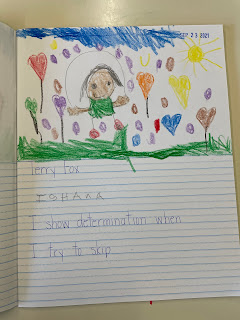 SEP 23 2021
Terry Fox
ISHAAA
I show determination when
I try to skip